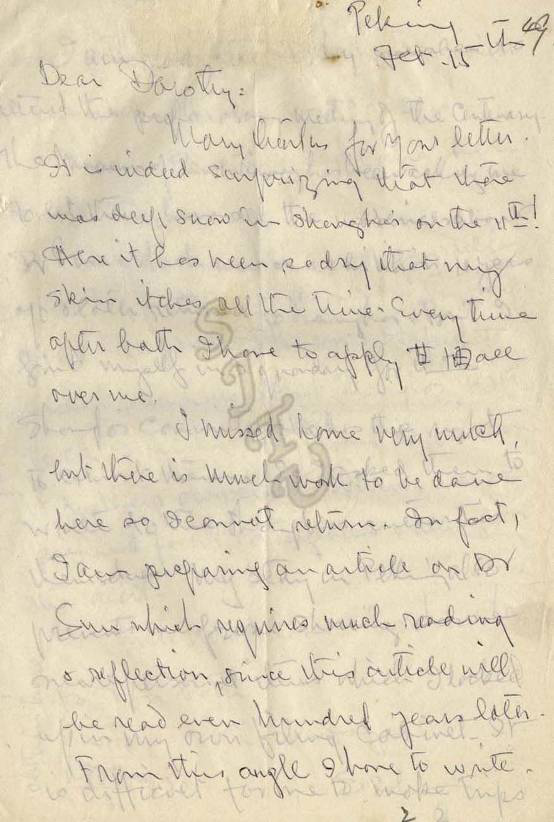 Peking
Feb. 15th
Dear Dorothy:
Many thanks for your letter.
It is indeed surprizing that there
was deep snow in Shanghai on the 11th!
Here it has been so dry that my
skin itches all the time. Every time
after bath I have to apply 甘油 all
over me.
I missed home very much,
but there is much work to be done
here so I cannot return. In fact,
I am preparing an article on Dr
Sun which requires much reading
& reflection, since this article will
be read even hundred years later.
From this angle I have to write.
2